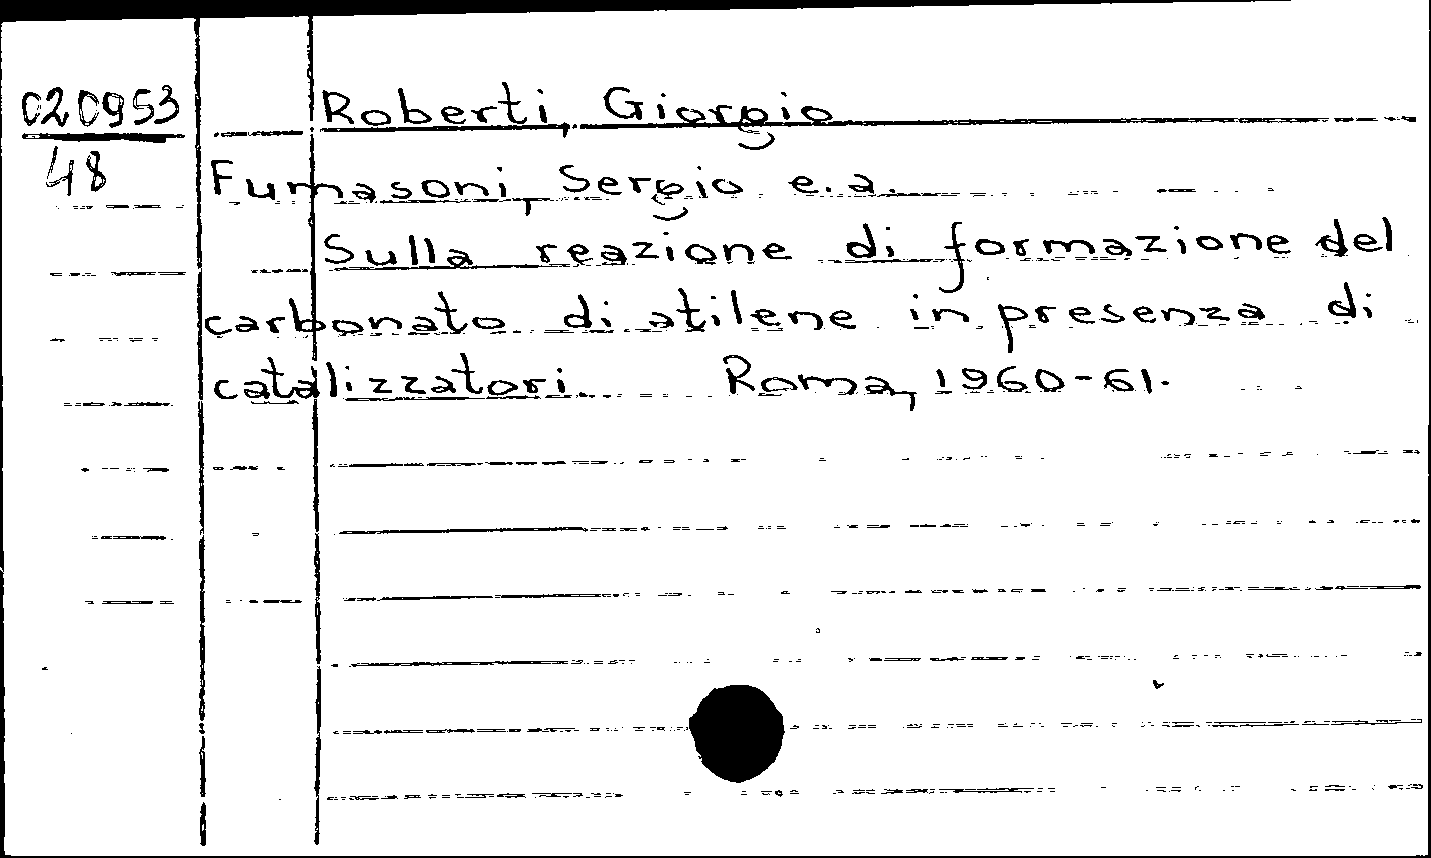 020953 Roberti, Giorgio
48 Fumasoni, Sergio e.a.
Sulla reazione di formazione del
carbonato di etilene in presenza di
catalizzatori. Roma, 1960-61.